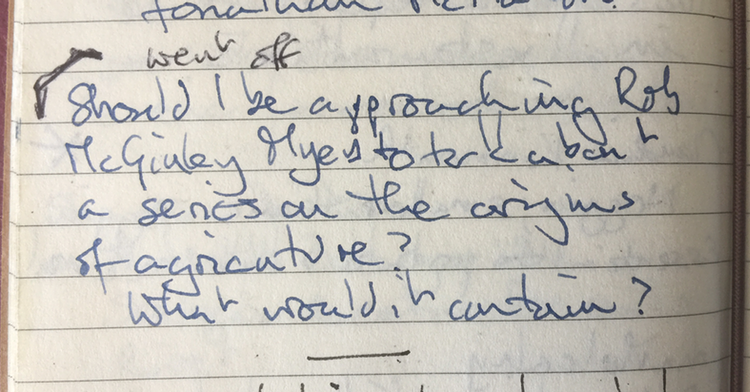 Jonathan
went off
Should I be approaching Rob
McGinley Myers to talk about
a series on the origins
of agriculture?
What would it contain?